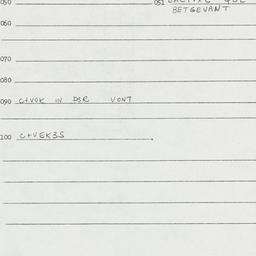 050
051
BETGEVANT
060
070
080
090 C+VOK IN DSR VONT
100 C+VEK3S